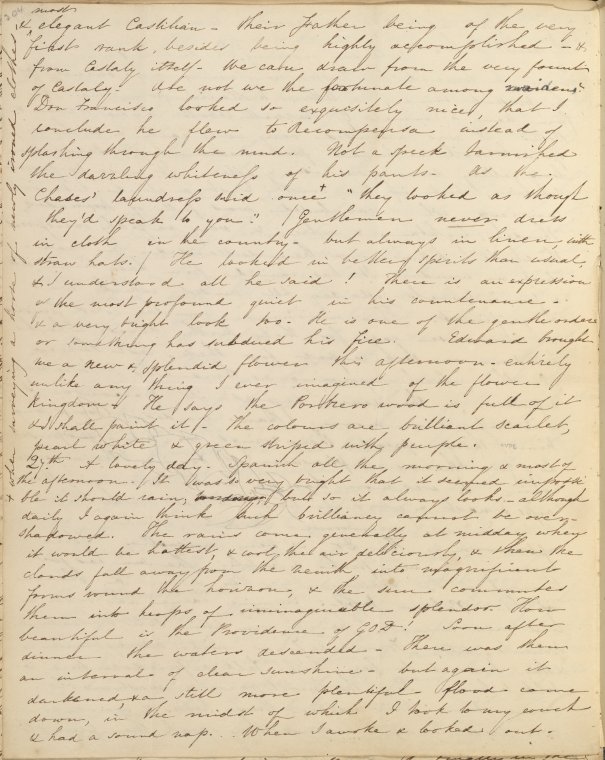 most
&, elegant Castilian - their Father being of the very
first rank, besides being highly accomplished - &
from Castaly itself - We can draw from the very fount
of Castaly. Are not we the fortunate among maidens"
Don Francisco looked so exquisitely nice, that I
conclude he flew to Recompensa instead of
splashing through the mud. Not a speck tarnished
the dazzling whiteness of his pants - As the
Chases' laundress said once + "they looked as though
they'd speak to you." / Gentlemen never dress
in cloth in the country - but always in linen, with
straw hats. / He looked in better spirits than usual,
& I understood all he said! There is an expression
of the most profound quiet in his countenance -
& a very bright look too - He is one of the gentle orders
or something has subdued his fire. Edward brought
me a new & splendid flower this afternoon - entirely
unlike any thing I ever imagined of the flower
kingdom. He says the Portrero wood is full of it
& I shall paint it / - The colours are brilliant scarlet,
pearl white & green striped with purple.
27th A lovely day. Spanish all the morning & most of
the afternoon. / It was so very bright that it seemed impossi
ble it should rain, but so it always looks - although
daily I again think such brilliancy cannot be over-
shadowed. The rains come generally at midday when
it would be hottest, & cool the air deliciously, & then the
clouds fall away from the zenith into magnificent
forms round the horizon, & the sun commutes
them into heaps of unimaginable splendor. How
beautiful is the Providence of GOD! Soon after
dinner the waters descended - There was then
an interval of clear sunshine - but again it
darkened, & a still more plentiful flood came
down, in the midst of which I took to my couch
& had a sound nap... When I awoke & looked out -
+ when surveying a horde of newly ironed clothes